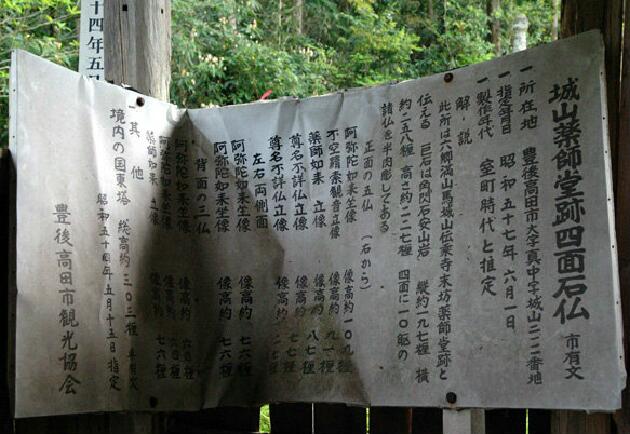 城山薬師堂跡四面石仏 市有文
一所在地 豊後高田市大字真中字城山二一二番地
一指定年月日 昭和五十七年六月一日
一製作年代 室町時代と推定
一解・説
此所は六郷満山馬城山伝乗寺末坊薬師堂跡と
伝える 巨石は角閃石安山岩 縦約一九七糎 横
約二五八糎 高さ約二二七糎 四面に一〇躯の
諸仏を半肉彫してある
正面の五仏 (右から)
阿弥陀如来坐像 像高約一〇九糎
不空羂索観音立像 像高約 九一糎
薬師如来 立像 像高約 八七糎
尊名不詳仏立像 像高約 七七糎
尊名不詳仏立像 像高約
左右両側面
阿弥陀如来坐像 像高約 七六糎
阿弥陀如来坐像 像高約 七六糎
背面の三仏
阿弥陀如来坐像 像高約 六〇糎
阿弥陀如来坐像 像高約 六〇糎
薬師如来 立像 像高約 七六糎
一其 他
境内の国東塔 総高約三〇三糎 市有文
昭和五十四年五月十五日指定
豊後高田市観光協会
十四年五